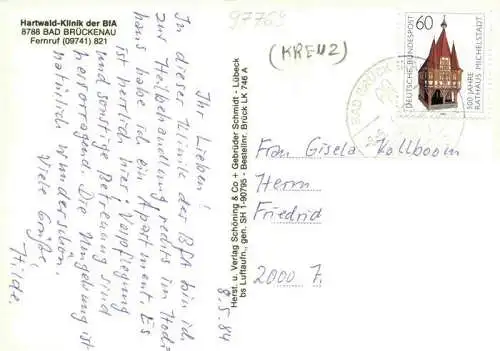 Hartwald-Klinik der BfA
8788 BAD BRÜCKENAU
Fernruf (09741) 821
97769
(KREUZ)
60
DEUTSCHE BUNDESPOST
500 JAHRE
RATHAUS MICHELSTADT
BAD BRÜCK
8.5.84
Ihr Lieben!
In dieser Klinik der BfA bin ich
zur Heilbehandlung, rechts im Hoch-
haus habe ich ein Apartment. Es
ist herrlich hier! Verpflegung
und sonstige Betreuung sind
hervorragend. Die Umgebung ist
natürlich wunderschön.
Viele Grüße!
Hilde.
Herst. u. Verlag Schöning & Co + Gebrüder Schmidt - Lübeck
bs Luftaufn., gen. SH 1-90795 - Bestellnr. Brück LK 746 A
Frau Gisela Kollboom
Herrn
Friedrid
2000